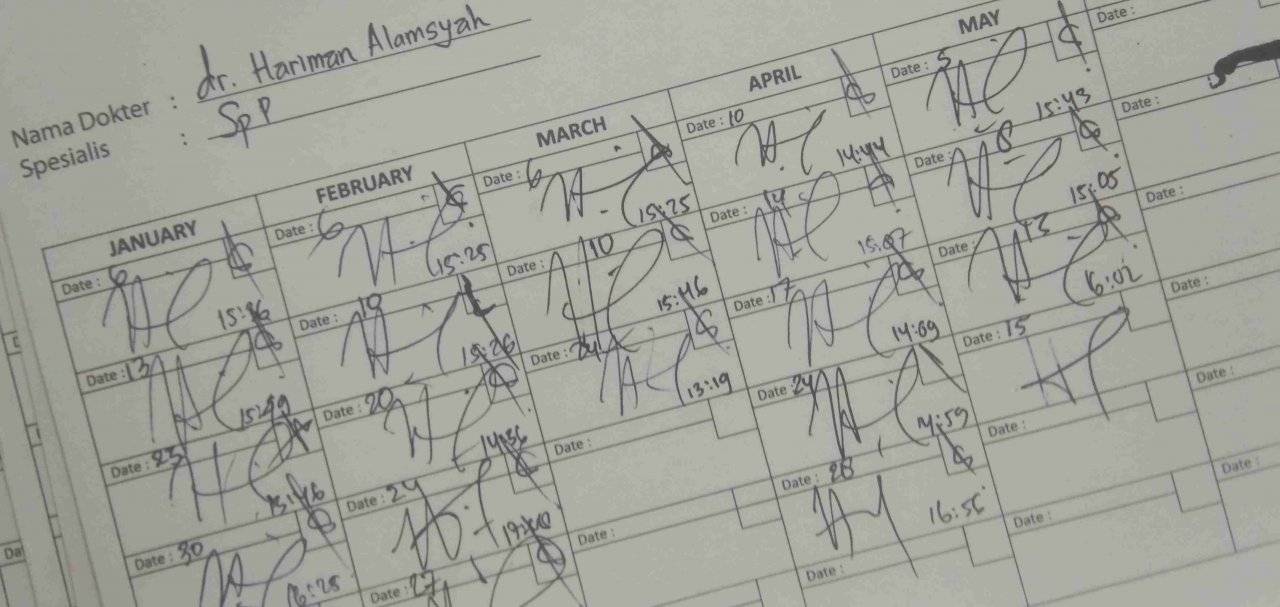 Nama Dokter : dr. Hariman Alamsyah
Spesialis : SpP
JANUARY
Date : 6
15:46
Date : 13
15:49
Date : 23
15:46
Date : 30
16:25
FEBRUARY
Date : 6
15:25
Date : 10
15:26
Date : 20
14:36
Date : 24
Date : 27
MARCH
Date : 6
15:25
Date : 10
15:46
Date : 24
13:19
Date :
Date :
Date :
APRIL
Date : 10
14:44
Date : 14
15:07
Date : 17
14:09
Date : 24
14:59
Date : 28
16:56
Date :
MAY
Date : 5
15:43
Date : 8
15:05
Date : 13
16:02
Date : 15
Date :
Date :
Date :
Date :
Date :
Date :
Date :
Date :
Da